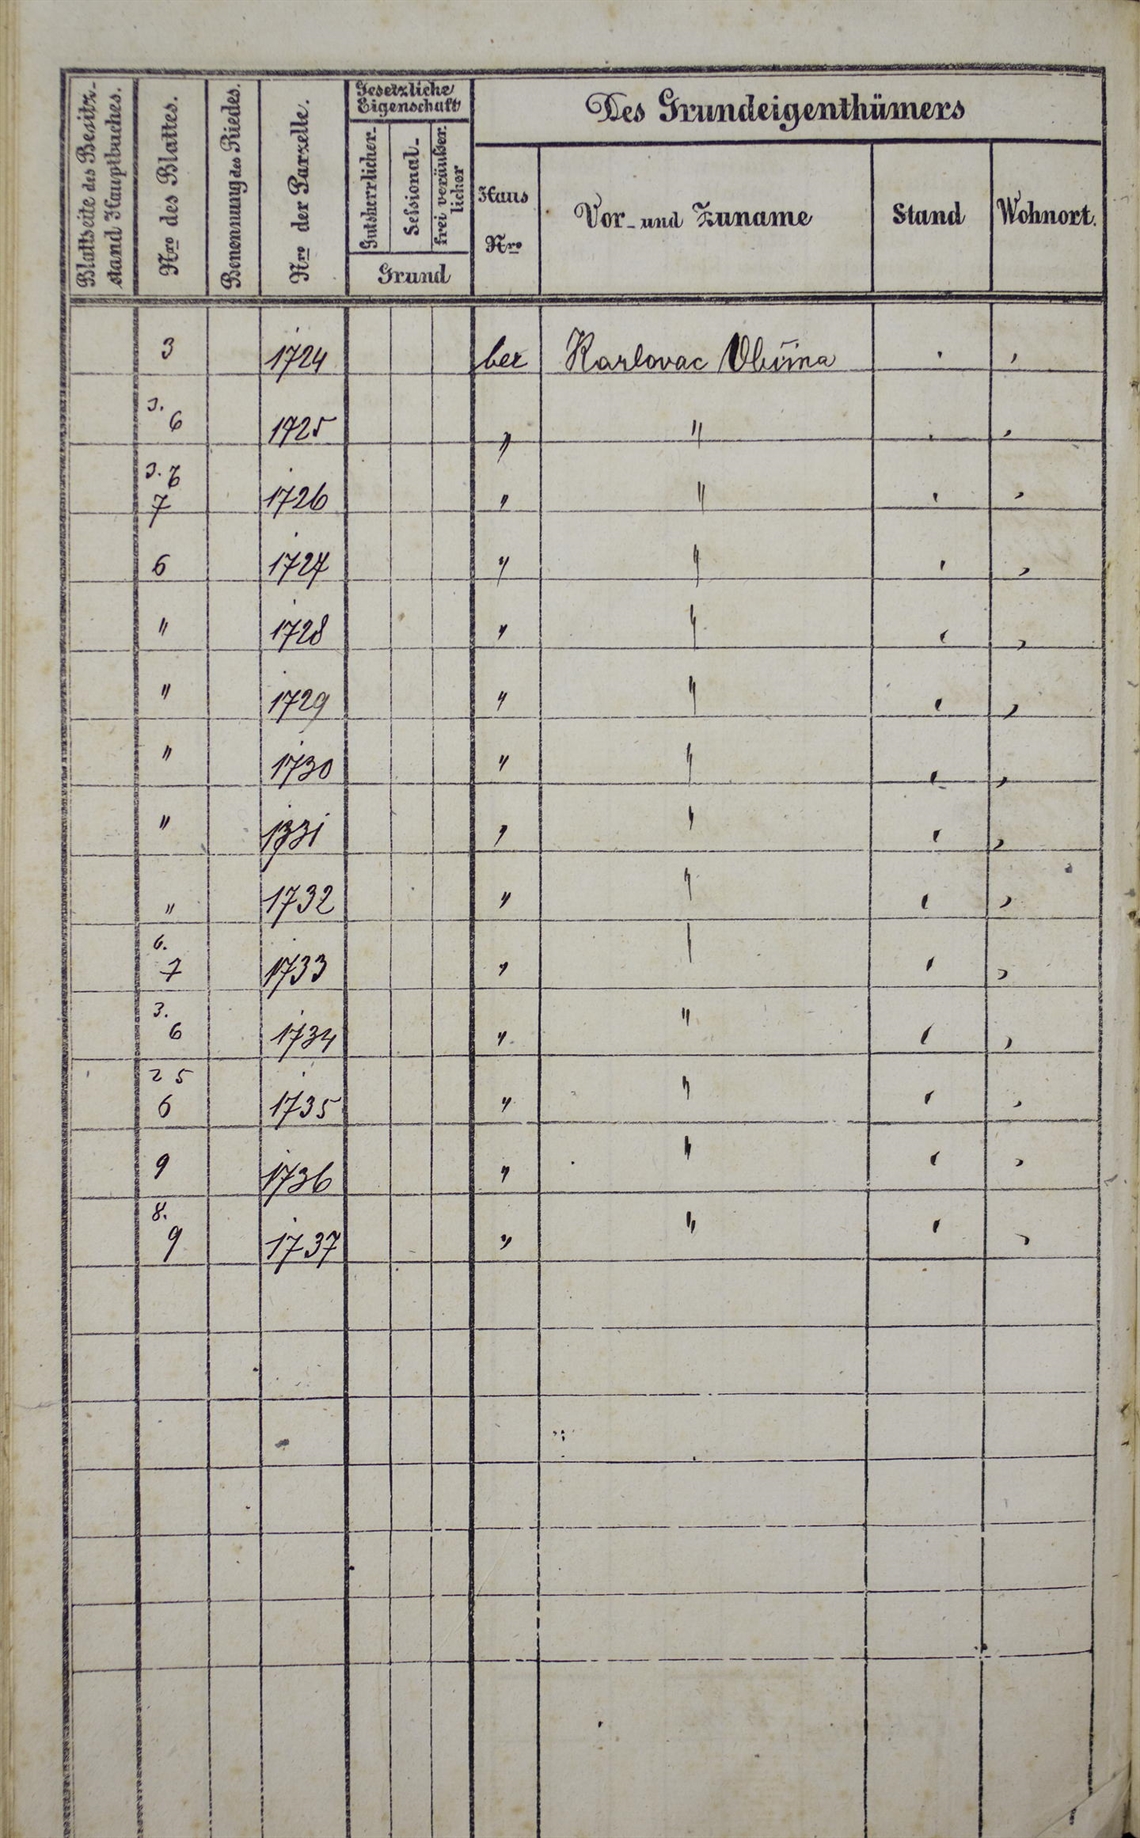 Blattseite des Besitz-
stand Hauptbuches.
Nro des Blattes.
Benennung des Riedes.
Nro der Parzelle.
Gesetzliche
Eigenschaft
Gutsherrlicher
Sessional-
frei veräußer
licher
Grund
Des Grundeigenthümers
Haus
Nro
Vor- und Zuname
Stand
Wohnort.
3 1724 bez Karlovac Obćina . ,
3.
6 1725 " " . ,
3. 6
7 1726 " " , ,
6 1727 " " , ,
" 1728 " " , ,
" 1729 " " , ,
" 1730 " " , ,
" 1731 " " , ,
" 1732 " " , ,
6.
7 1733 " " , ,
3.
6 1734 " " , ,
2 5
6 1735 " " , ,
9 1736 " " , ,
8.
9 1737 " " , ,